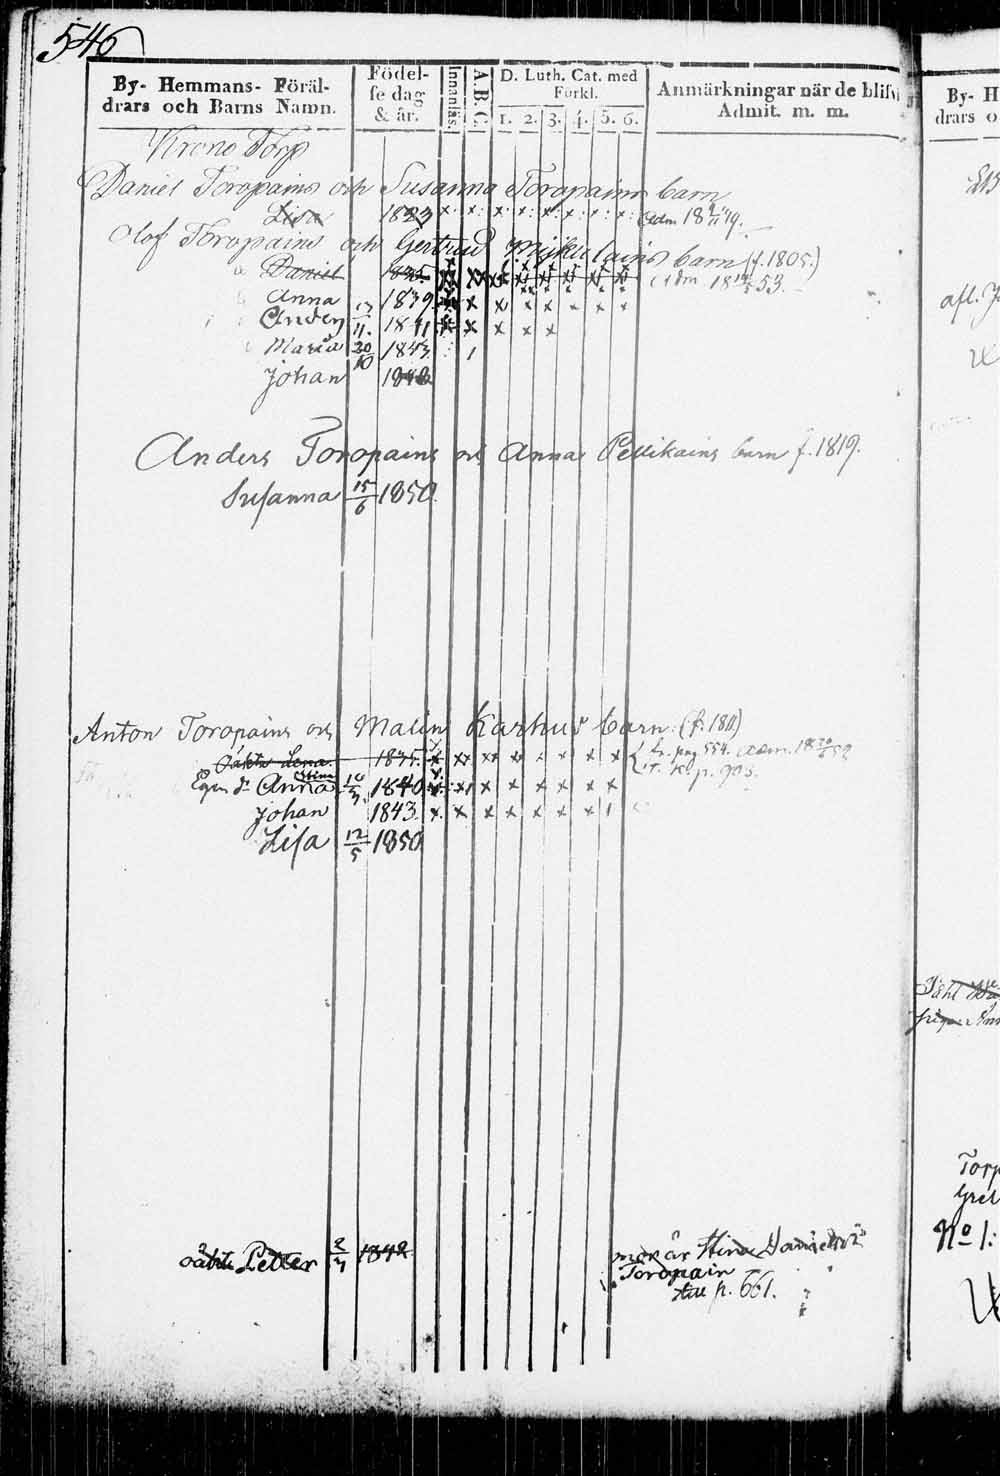 546
By- Hemmans- Föräl-
drars och Barns Namn.
Födel-
se dag
& år.
Innanläs.
A.B.C.
D. Luth. Cat. med
Förkl.
1. 2. 3. 4. 5. 6.
Anmärkningar när de blifvi
Admit. m. m.
Krono Torp
Daniel Toropains och Susanna Toropains barn
Lisa 1823 x x x x x x x x adm 18 49.
Olof Toropains och Gertrud Mijkulains barn (f. 1805.)
Daniel 1835. adm 18 53.
Anna 1839
Anders 17/11. 1841
Maria 20/10 1843
Johan 1848
Anders Toropains och Anna Pellikains barn f. 1819.
Susanna 15/6 1850.
Anton Toropains och Malin Karhus barn (f. 1811)
Lena 1835. pag 554. adm. 18 52
p. 903.
Anna Stina 1840
Johan 1843. x x x x x x x x
Lisa 12/5 1850
oäkta Petter 2/7 1842 mor är Stina Danielsdr
Toropain
p. 661.
By- H
drars o
afl.
Torp
Gret
No 1: